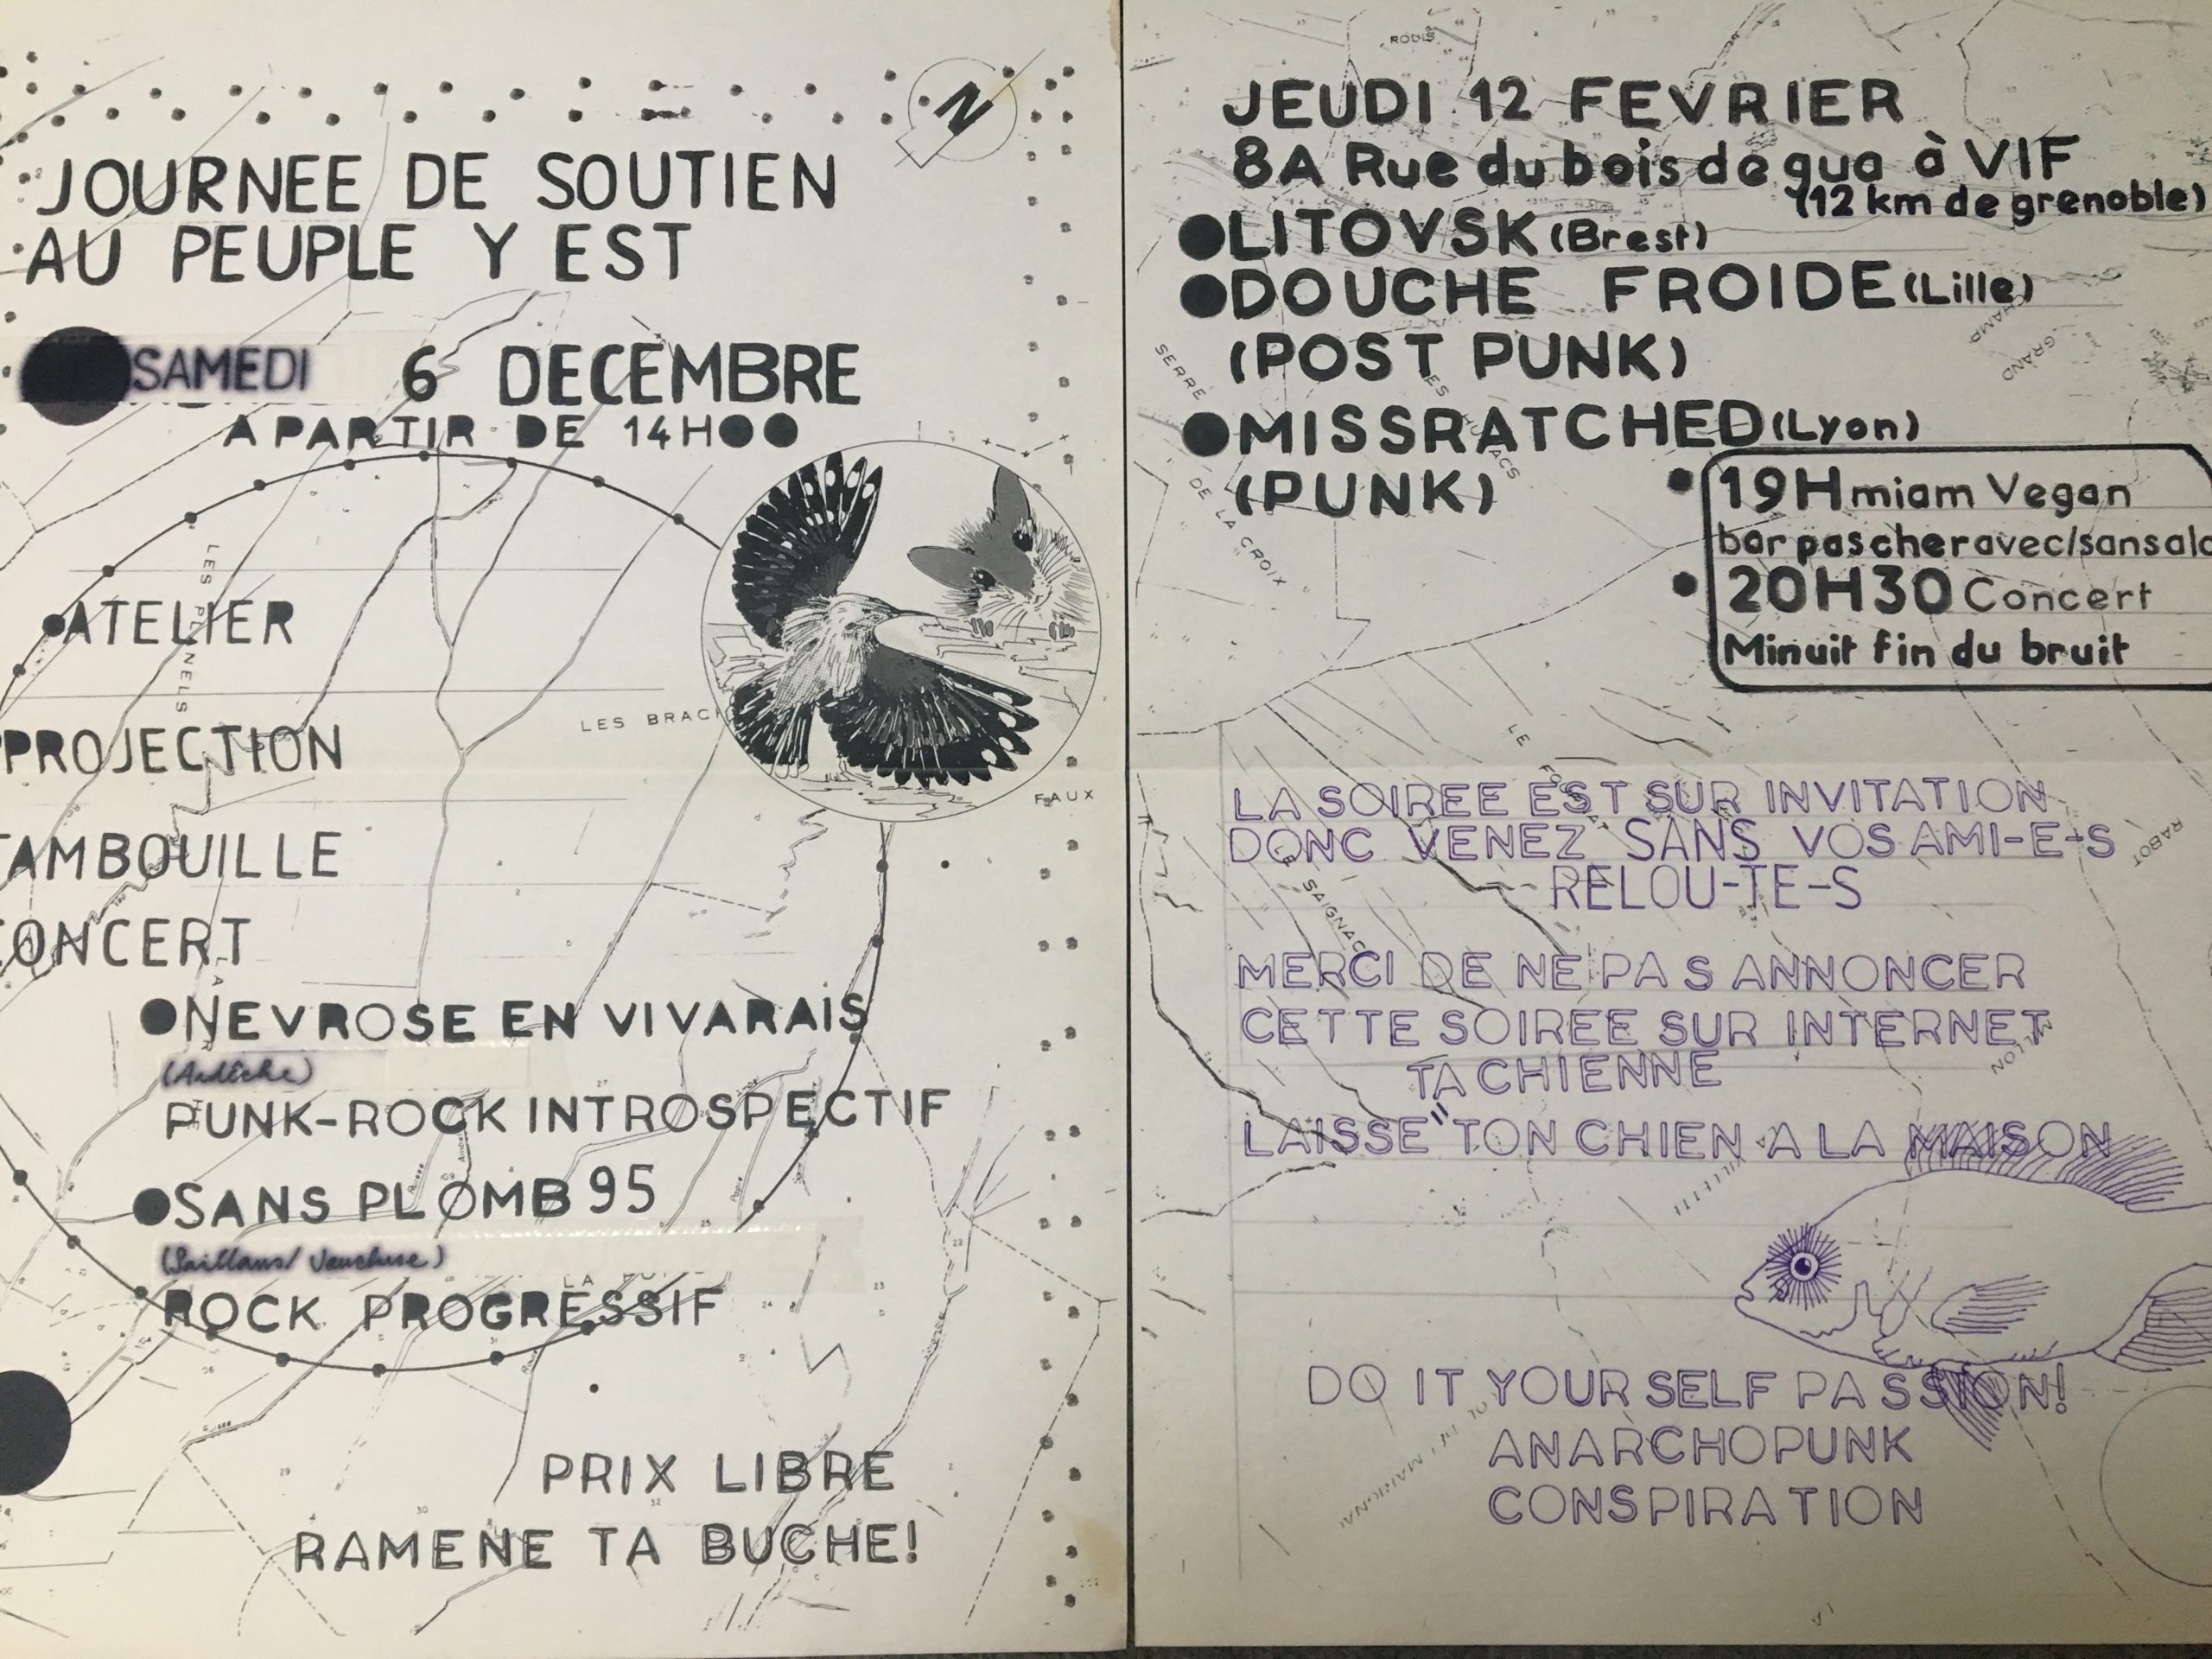 N
JOURNEE DE SOUTIEN
AU PEUPLE Y EST
SAMEDI 6 DECEMBRE
A PARTIR DE 14H00
ATELIER
PROJECTION
TAMBOUILLE
CONCERT
LES PLANELS
LES BRACH
FAUX
NEVROSE EN VIVARAIS
(Ardèche)
PUNK-ROCK INTROSPECTIF
SANS PLOMB 95
(Saillans/Vaucluse)
ROCK PROGRESSIF
PRIX LIBRE
RAMENE TA BUCHE!
JEUDI 12 FEVRIER
8A Rue du bois de gua à VIF
(12 km de grenoble)
LITOVSK (Brest)
DOUCHE FROIDE (Lille)
(POST PUNK)
MISSRATCHED (Lyon)
(PUNK)
19H miam Vegan
bar pascher avec/sansalc
20H30 Concert
Minuit fin du bruit
SERRE
DE LA CROIX
CHAMP
GRAND
LE
LE SAIGNAC
RABOT
LA SOIREE EST SUR INVITATION
DONC VENEZ SANS VOS AMI-E-S
RELOU-TE-S
MERCI DE NE PAS ANNONCER
CETTE SOIREE SUR INTERNET
TA CHIENNE
LAISSE "TON CHIEN A LA MAISON
DO IT YOUR SELF PASSION!
ANARCHOPUNK
CONSPIRATION
LA